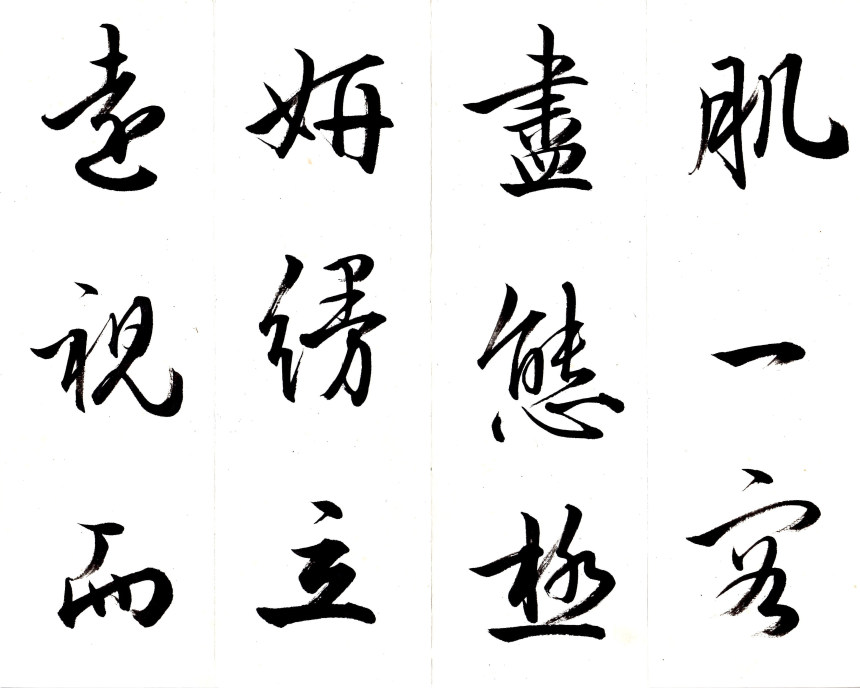 肌一容
盡態極
妍縵立
遠視而